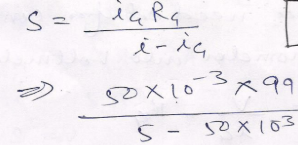 S = i_G R_G / i - i_G
⇒ 50×10^-3×99 / 5 - 50×10^3